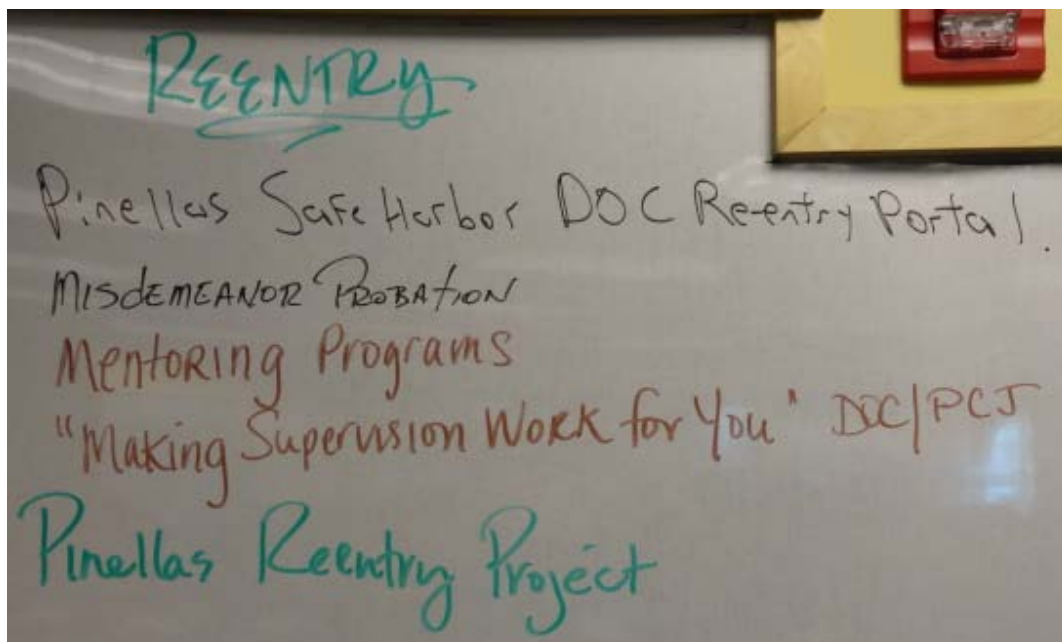 REENTRY
Pinellas Safe Harbor DOC Re-entry Portal.
MISdEMEANOR PROBATION
MENTORING Programs
"Making Supervision Work for You" DOC/PCJ
Pinellas Reentry Project